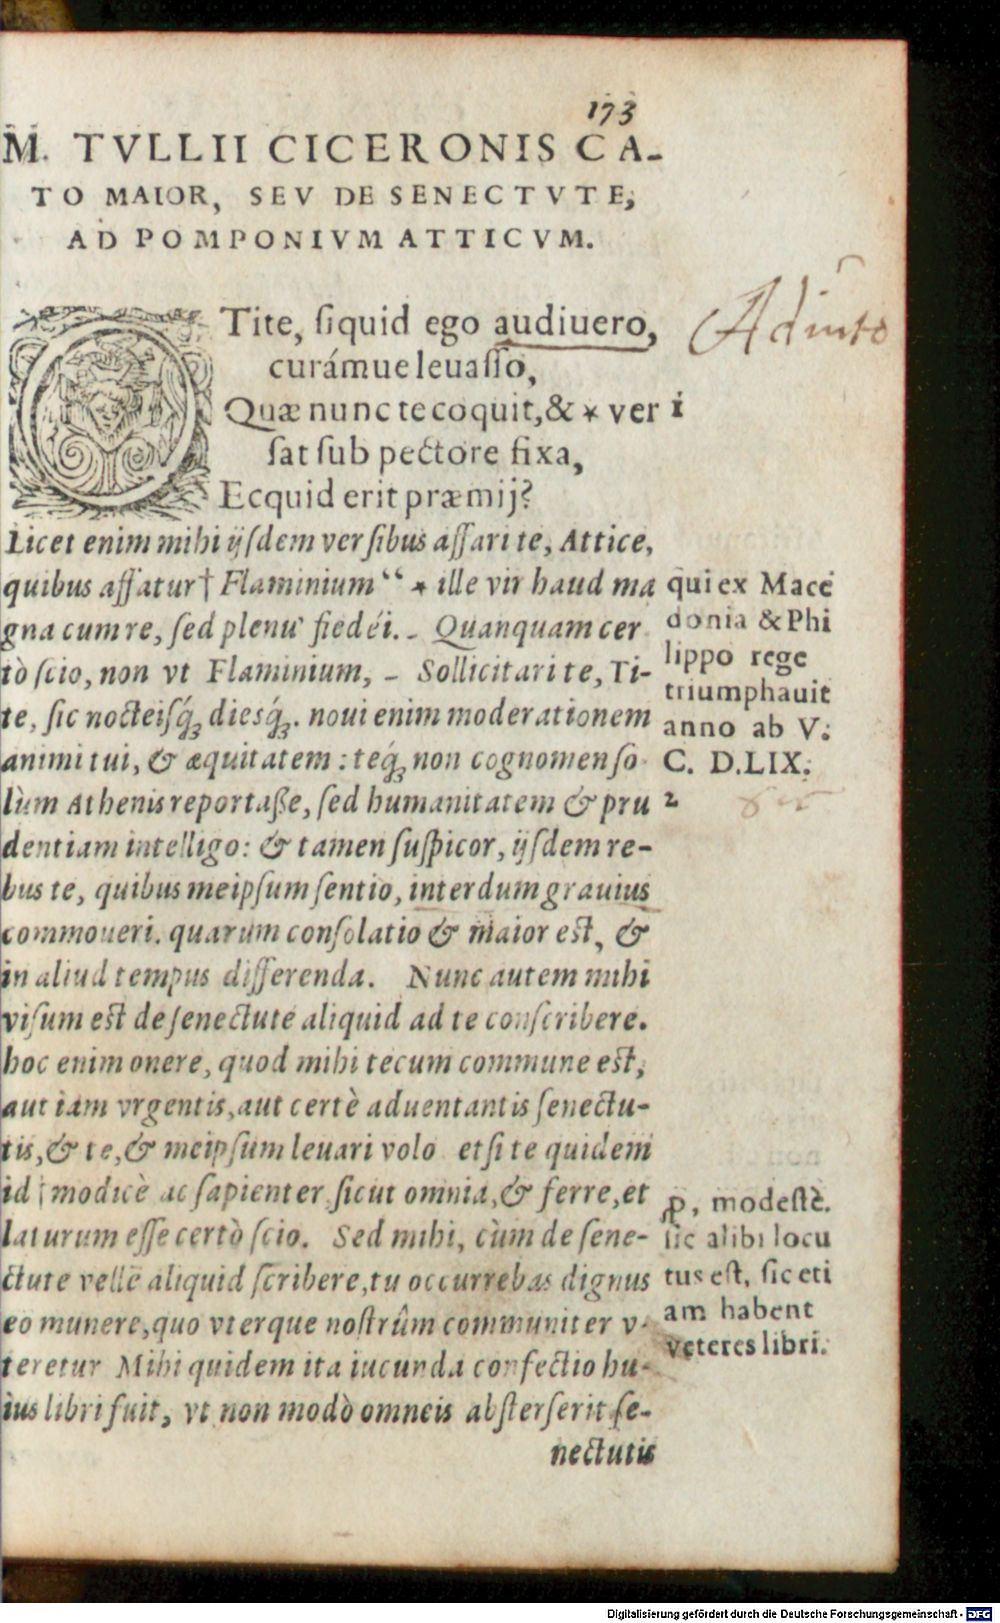 173
M. TVLLII CICERONIS CA-
TO MAIOR, SEV DE SENECTVTE,
AD POMPONIVM ATTICVM.
O Tite, siquid ego audiuero,
curámue leuasso,
Quæ nunc te coquit, & * ver
sat sub pectore fixa,
Ecquid erit præmij?
Licet enim mihi ijsdem versibus affari te, Attice,
quibus affatur † Flaminium “ * ille vir haud ma
gna cum re, sed plenu' fiedéi. - Quanquam cer
tò scio, non vt Flaminium, - Sollicitari te, Ti-
te, sic nocteisq́ꝫ diesq́ꝫ. noui enim moderationem
animi tui, & æquitatem: teq́ꝫ non cognomen so
lùm Athenis reportaße, sed humanitatem & pru
dentiam intelligo: & tamen suspicor, ijsdem re-
bus te, quibus meipsum sentio, interdum grauius
commoueri. quarum consolatio & maior est, &
in aliud tempus differenda. Nunc autem mihi
visum est de senectute aliquid ad te conscribere.
hoc enim onere, quod mihi tecum commune est,
aut iam vrgentis, aut certè aduentantis senectu-
tis, & te, & meipsum leuari volo etsi te quidem
id † modicè ac sapienter sicut omnia, & ferre, et
laturum esse certò scio. Sed mihi, cùm de sene-
ctute velle aliquid scribere, tu occurrebas dignus
eo munere, quo vterque nostrûm communiter v-
teretur Mihi quidem ita iucunda confectio hu-
ius libri fuit, vt non modò omneis absterserit se-
nectutis
Adiuto
1
qui ex Mace
donia & Phi
lippo rege
triumphauit
anno ab V.
C. D.LIX.
2
ꝓ, modestè.
sic alibi locu
tus est, sic eti
am habent
veteres libri.
Digitalisierung gefördert durch die Deutsche Forschungsgemeinschaft - DFG